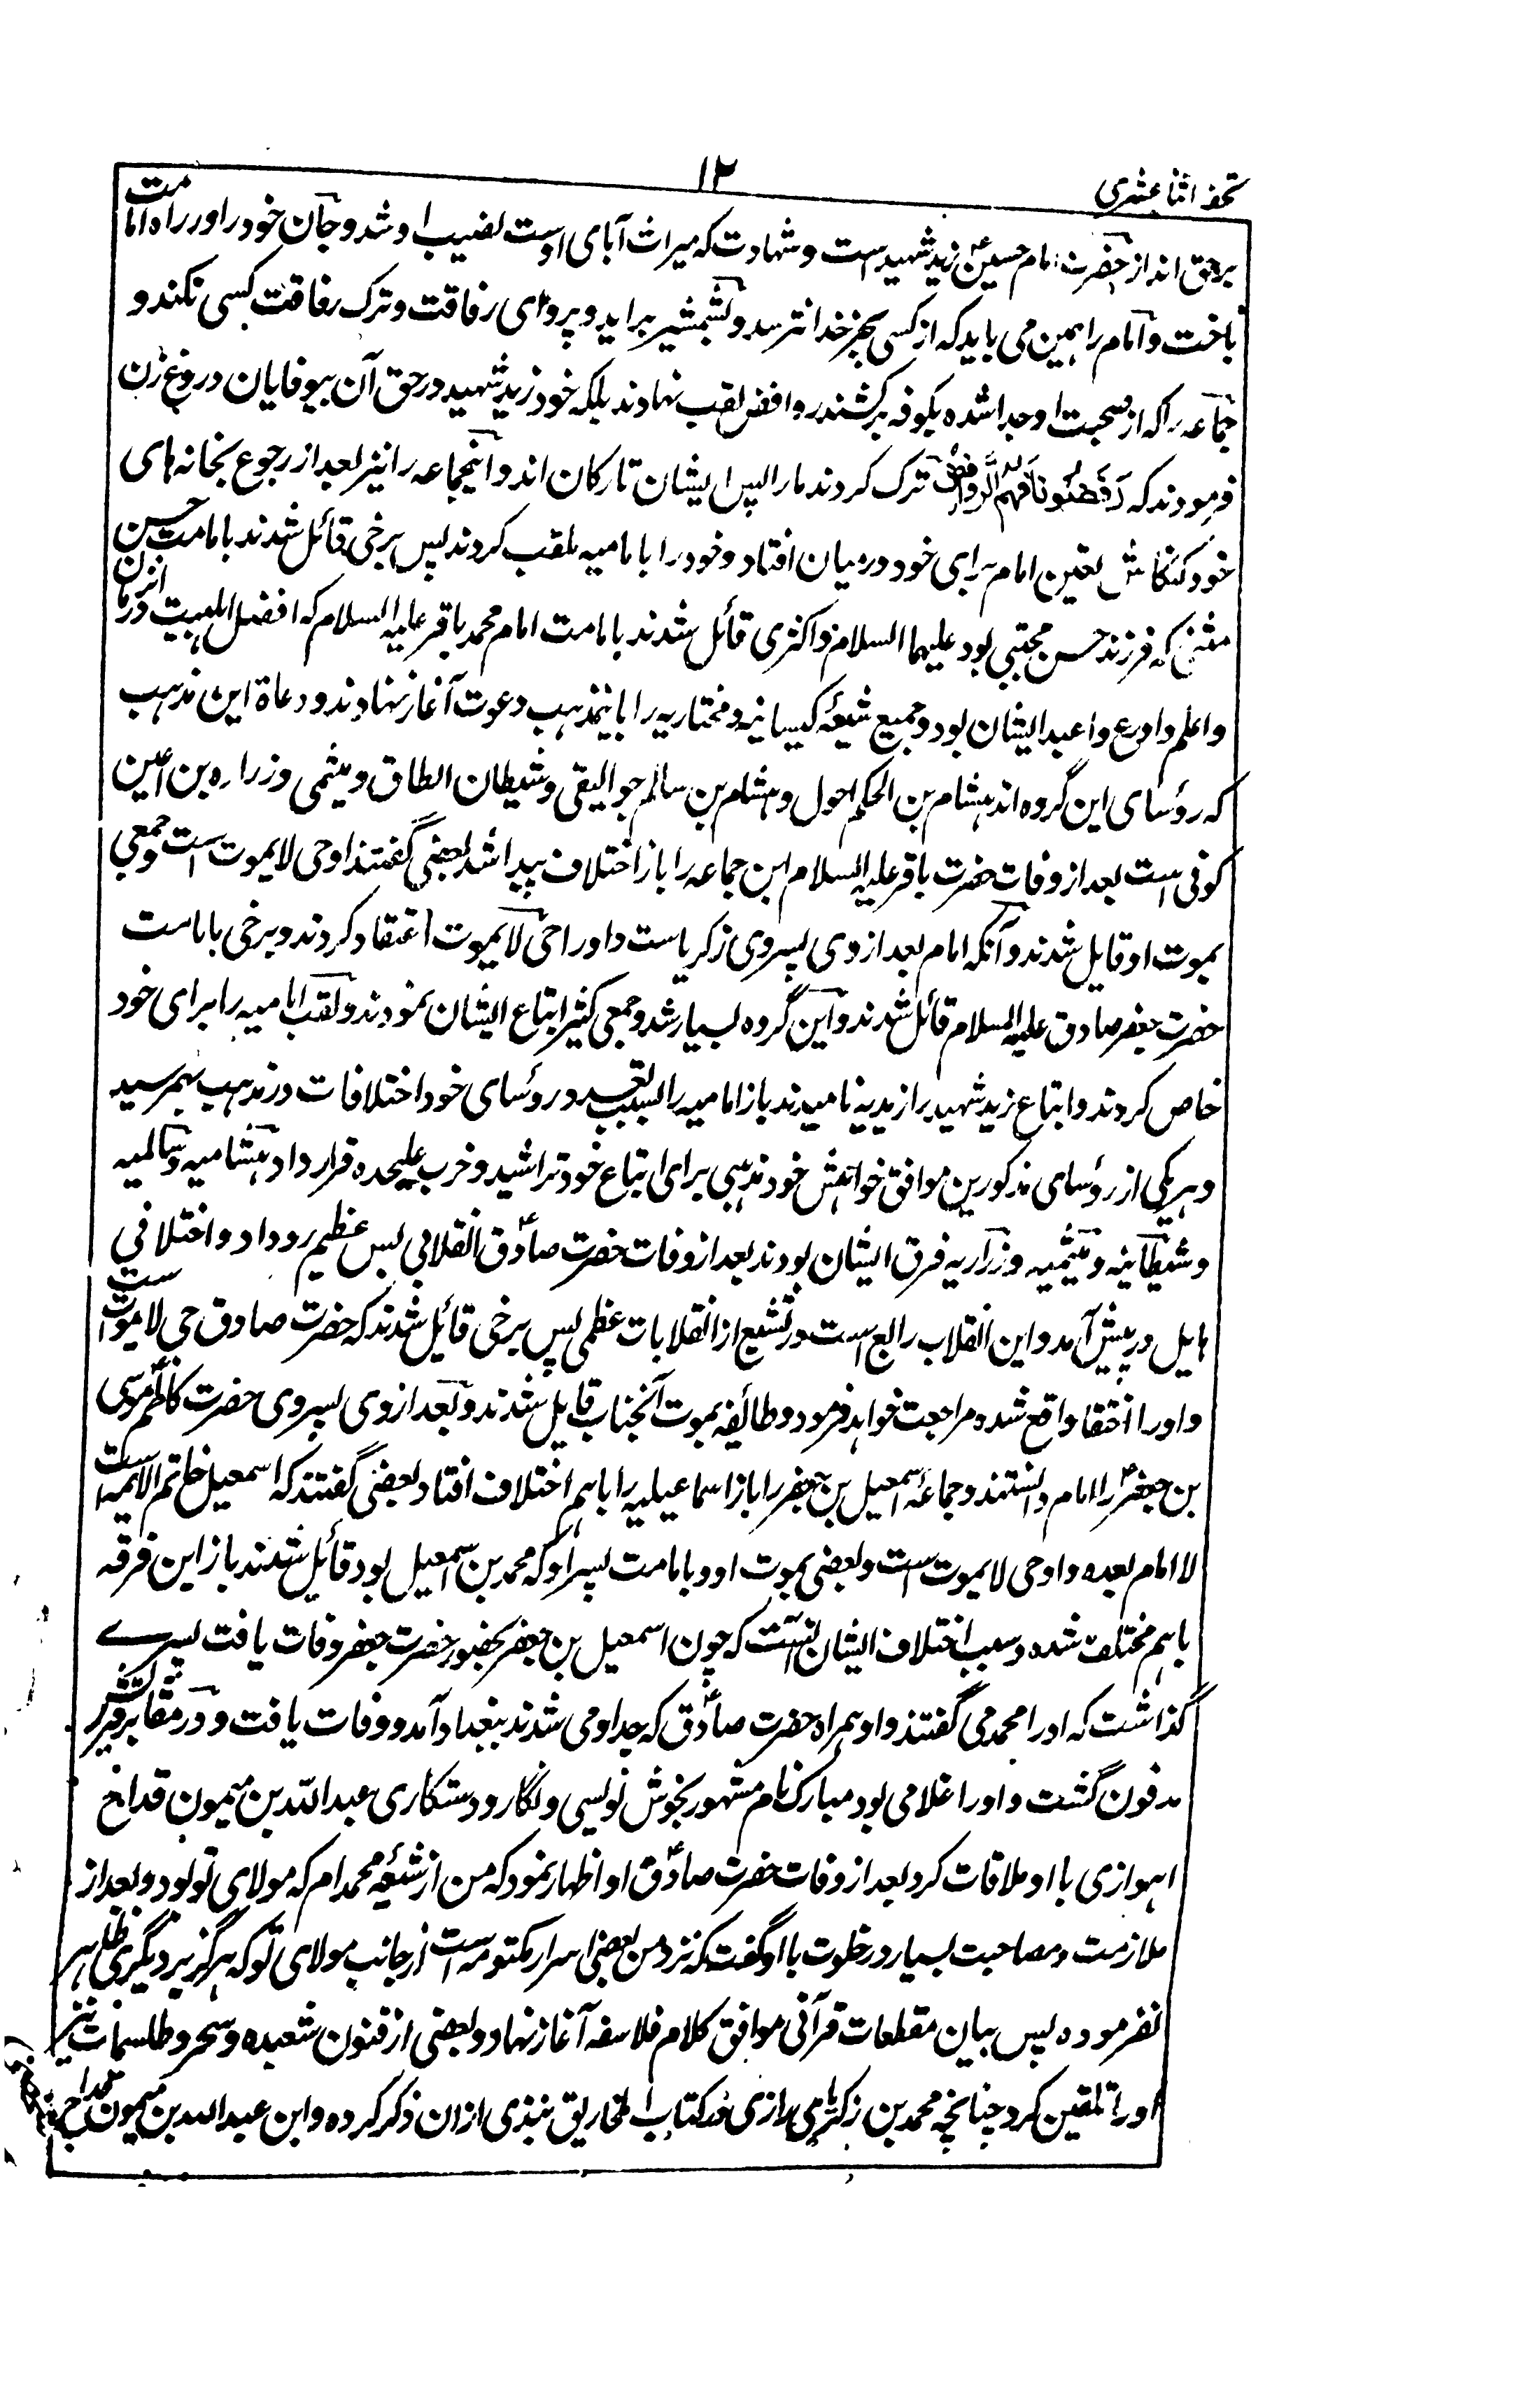 تحفهٔ اثنا عشری
۱۲
برحق انداز حضرت امام حسین ع زید شهید است و شهادت که میراث آبای اوست نصیب او شد و جان خود را در راه امامت
باخت و امام را همین می باید که از کسی بجز خدا نترسد و بشمشیر براید و پروای رفاقت و ترک رفاقت کسی نکند و
جماعه را که از صحبت او جدا شده بکوفه برگشتند روافض لقب نهادند بلکه خود زید شهید در حق آن بیوفایان دروغ زن
فرمودند که رَفَضُونَا فَهُمُ الرَّوَافِضُ ترک کردند مارا پس ایشان تارکان اند و اینجماعه را نیز بعد از رجوع بخانه های
خود کنکاش تعین امام برای خود درمیان افتاد و خود را بامامیه ملقب کردند پس برخی قائل شدند بامامت حسن
مثنی که فرزند حسن مجتبی بود علیهما السلام و اکثری قائل شدند بامامت امام محمد باقر علیه السلام که افضل اهلبیت دران زمان
و اعلم و اورع و اعبد ایشان بود و جمیع شیعهٔ کیسانیه و مختاریه را باینمذهب دعوت آغاز نهادند و دعاة این مذهب
که رؤسای این گروه اند هشام بن الحکم احول و هشام بن سالم جوالیقی و شیطان الطاق و میثمی و زراره بن اعین
کوفی است بعد از وفات حضرت باقر علیه السلام این جماعه را باز اختلاف پیدا شد بعضی گفتند او حی لایموت است و جمعی
بموت او قایل شدند و آنکه امام بعد از وی پسر وی زکریاست و او را حی لا یموت اعتقاد کردند و برخی بامامت
حضرت جعفر صادق علیه السلام قائل شدند و این گروه بسیار شد و جمعی کثیر اتباع ایشان نمودند و لقب امامیه را برای خود
خاص کردند و اتباع زید شهید را زیدیه نامیدند باز امامیه را بسبب تعدد روئسای خود اختلافات در مذهب بهمرسید
و هر یکی از رؤسای مذکورین موافق خواهش خود مذهبی برای اتباع خود تراشید و حزب علیحده قرار داد هشامیه و سالمیه
و شیطانیه و میثمیه و زراریه فرق ایشان بودند بعد از وفات حضرت صادق ع انقلابی بس عظیم رو داد و اختلافی
هایل در پیش آمد و این انقلاب رابع است در تشیع از انقلابات عظمی پس برخی قائل شدند که حضرت صادق حی لایموت است
و او را اختفا واقع شده مراجعت خواهد فرمود و طائفه بموت آنجناب قایل شدند و بعد از وی پسر وی حضرت کاظم موسی
بن جعفر ع را امام دانستند و جماعهٔ اسمعیل بن جعفر را باز اسماعیلیه را باهم اختلاف افتاد بعضی گفتند که اسمعیل خاتم الائمه است
لا امام بعده و او حی لایموت است و بعضی بموت او و بامامت پسر او که محمد بن اسمعیل بود قائل شدند باز این فرقه
باهم مختلف شده و سبب اختلاف ایشان اینست که چون اسمعیل بن جعفر بحضور حضرت جعفر وفات یافت پسرے
گذاشت که او را محمد می گفتند و او همراه حضرت صادق ع که جد او می شدند ببغداد آمد و وفات یافت و در مقابر قریش
مدفون گشت و او را غلامی بود مبارک نام مشهور بخوش نویسی و نگار و دستکاری عبدالله بن میمون قداح
اهوازی با او ملاقات کرد بعد از وفات حضرت صادق ع او اظهار نمود که من از شیعهٔ محمد ام که مولای تو بود و بعد از
ملازمت و مصاحبت بسیار در خلوت با او گفت که نزد من بعضی اسرار مکتومه است از جانب مولای تو که هرگز بر دیگری ظاهر
نفرموده پس بیان مقطعات قرآنی موافق کلام فلاسفه آغاز نهاد و بعضی از فنون شعبده و سحر و طلسمات نیز
او را تلقین کرد چنانچه محمد بن زکریای رازی در کتاب المخاریق نبذی ازان ذکر کرده و ابن عبدالله بن میمون قداح